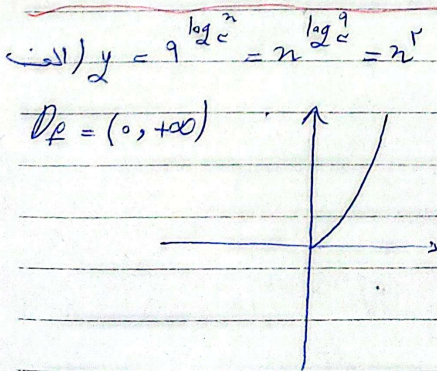 الف) y = 9^{log_3^x} = x^{log_3^9} = x^۲
D_f = (0, +∞)